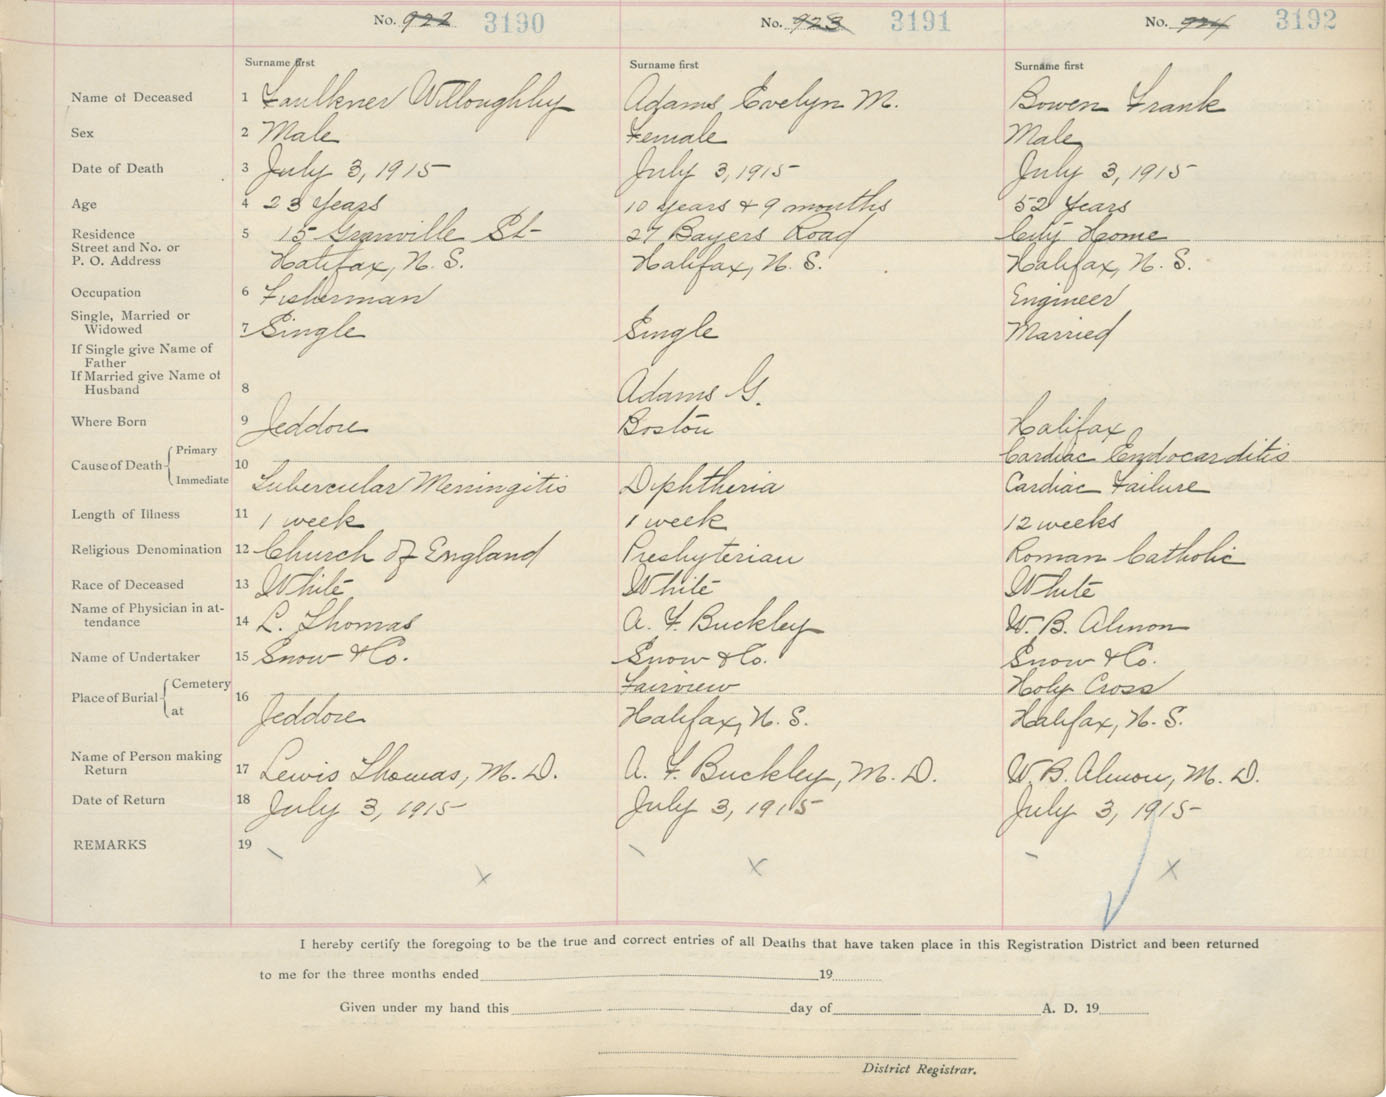 No. 922 3190 No. 923 3191 No. 924 3192
Surname first Surname first Surname first
Name of Deceased 1 Faulkner Willoughby Adams, Evelyn M. Bowen Frank
Sex 2 Male Female Male
Date of Death 3 July 3, 1915 July 3, 1915 July 3, 1915
Age 4 23 Years 10 years & 9 months 52 Years
Residence 5 15 Granville St 27 Bayers Road City Home
Street and No. or
P. O. Address Halifax, N. S. Halifax, N. S. Halifax, N. S.
Occupation 6 Fisherman Engineer
Single, Married or
Widowed 7 Single Single Married
If Single give Name of
Father
If Married give Name of
Husband 8 Adams G.
Where Born 9 Jeddore Boston Halifax
Cause of Death Primary 10 Cardiac Endocarditis
Immediate Tubercular Meningitis Diphtheria Cardiac Failure
Length of Illness 11 1 week 1 week 12 weeks
Religious Denomination 12 Church of England Presbyterian Roman Catholic
Race of Deceased 13 White White White
Name of Physician in at-
tendance 14 L. Thomas A. F. Buckley W. B. Almon
Name of Undertaker 15 Snow & Co. Snow & Co. Snow & Co.
Place of Burial Cemetery 16 Fairview Holy Cross
at Jeddore Halifax, N. S. Halifax, N. S.
Name of Person making
Return 17 Lewis Thomas, M. D. A. F. Buckley, M. D. W. B. Almon, M. D.
Date of Return 18 July 3, 1915 July 3, 1915 July 3, 1915
REMARKS 19
x x x
I hereby certify the foregoing to be the true and correct entries of all Deaths that have taken place in this Registration District and been returned
to me for the three months ended 19
Given under my hand this day of A. D. 19
District Registrar.